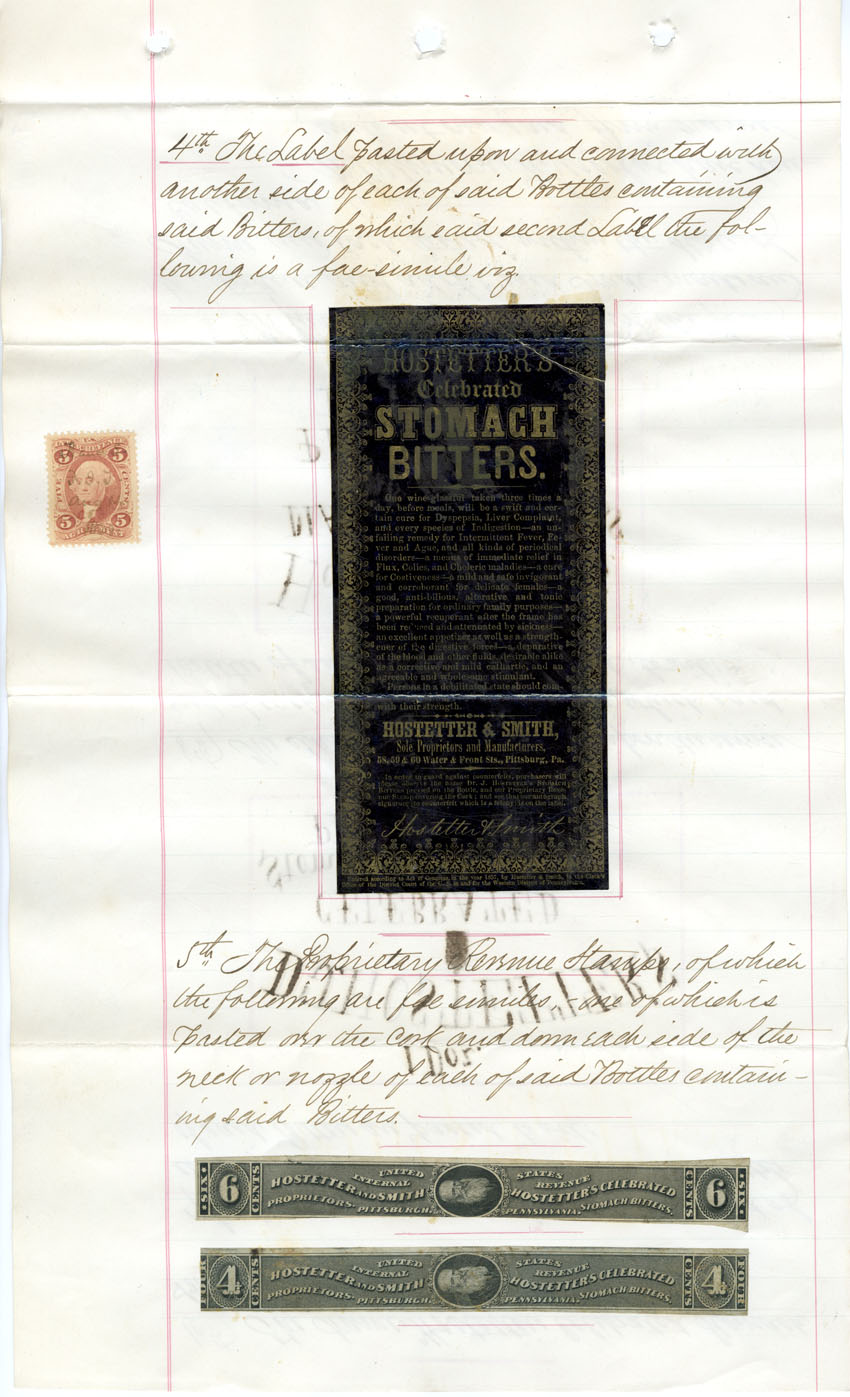 4th. The Label pasted upon and connected with
another side of each of said Bottles containing
said Bitters, of which said second Label the fol-
lowing is a fac-simile viz.
HOSTETTER'S
Celebrated
STOMACH
BITTERS.
One wine-glassful taken three times a
day, before meals, will be a swift and cer-
tain cure for Dyspepsia, Liver Complaint,
and every species of Indigestion—an un-
failing remedy for Intermittent Fever, Fe-
ver and Ague, and all kinds of periodical
disorders—a means of immediate relief in
Flux, Colics, and Choleric maladies—a cure
for Costiveness—a mild and safe invigorant
and corroborant for delicate females—a
good, anti-bilious, alterative and tonic
preparation for ordinary family purposes—
a powerful recuperant after the frame has
been reduced and attenuated by sickness—
an excellent appetizer as well as a strength-
ener of the digestive forces—a depurative
of the blood and other fluids, desirable alike
as a corrective and mild cathartic, and an
agreeable and wholesome stimulant.
Persons in a debilitated state should com-
with their strength.
HOSTETTER & SMITH,
Sole Proprietors and Manufacturers,
58, 59 & 60 Water & Front Sts., Pittsburg, Pa.
In order to guard against counterfeits, purchasers will
please observe the name Dr. J. Hostetter's Stomach
Bitters on the Bottle, and our Proprietary Reve-
nue Stamp covering the Cork; and see that our autograph
signature (to counterfeit which is a felony) is on the label.
Hostetter & Smith
Entered according to Act of Congress, in the year 1857, by Hostetter & Smith, in the Clerk's
Office of the District Court of the U.S. in and for the Western District of Pennsylvania.
5 5
FIVE CENTS
5 5
5th. The Proprietary Revenue Stamps, of which
the following are fac similes, - one of which is
pasted over the Cork and down each side of the
neck or nozzle of each of said Bottles contain-
ing said Bitters.
SIX 6 CENTS UNITED INTERNAL STATES REVENUE CENTS 6 SIX
HOSTETTER AND SMITH HOSTETTER'S CELEBRATED
PROPRIETORS. PITTSBURGH, PENNSYLVANIA. STOMACH BITTERS.
FOUR 4 CENTS UNITED INTERNAL STATES REVENUE CENTS 4 FOUR
HOSTETTER AND SMITH HOSTETTER'S CELEBRATED
PROPRIETORS. PITTSBURGH, PENNSYLVANIA. STOMACH BITTERS.